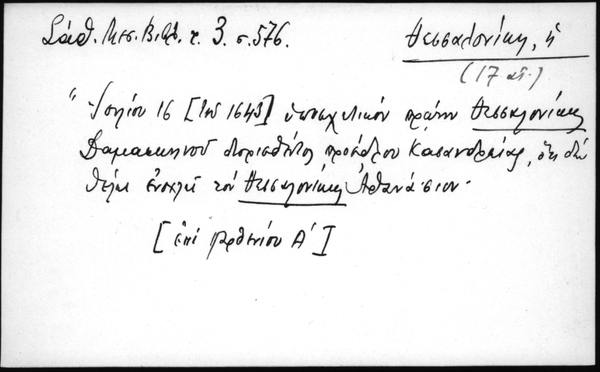 Σάθ. Μεσ. Βιβλ. τ. 3. σ. 576.
Θεσσαλονίκη, ἡ
(17 αἰ.)
"Ἰουλίου 16 [τοῦ 1643] ὑποσχετικὸν πρώην Θεσσαλονίκης
Δαμασκηνοῦ διορισθέντος προέδρου Κασανδρείας, ὅτι δὲν
θέλει ἐνοχλεῖ τὸν Θεσσαλονίκης Ἀθανάσιον.
[ἐπὶ Παρθενίου Α΄]